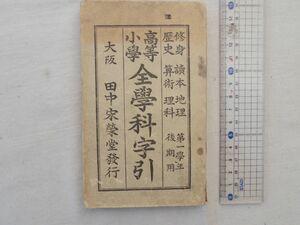 修身 讀本 地理 第一學年
歷史 算術 理科 後期用
高等小學 全學科字引
大阪 田中宋榮堂發行